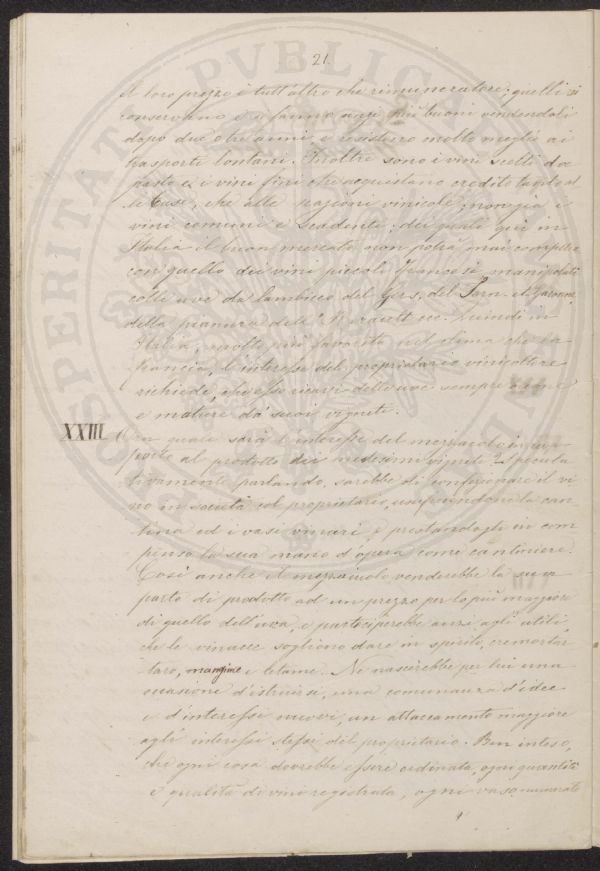 21.
il loro prezzo è tutt'altro che rimuneratore; quelli si
conservano e si fanno anzi più buoni vendendoli
dopo due o tre anni e resistono molto meglio ai
trasporti lontani. Inoltre sono i vini scelti da
pasto e i vini fini che acquistano credito tanto al
le Case, che alle regioni vinicole, non già i
vini comuni e scadenti, dei quali qui in
Italia il buon mercato non potrà mai competere
con quello dei vini piccoli francesi, manipolati
colle uve da lambicco del Gers, del Tarn et Garonne
della pianura dell' Herault ecc. Quindi in
Italia, molto più favorita nel clima che la
Francia, l'interesse del proprietario viticoltore
richiede, che esso ricavi delle uve sempre
e mature da' suoi vigneti.
XXIII Con quale sarà l'interesse del mezzaiuolo in rap
porto al prodotto dei medesimi vigneti? Specula
tivamente parlando, sarebbe di confezionare il vi
no in società col proprietario, usufruendone la can
tina ed i vasi vinari e prestandogli in com
penso la sua mano d'opera come cantiniere.
Così anche il mezzaiuolo venderebbe la sua
parte di prodotto ad un prezzo per lo più maggiore
di quello dell'uva, e parteciperebbe anzi agli utili,
che le vinacce sogliono dare in spirito, cremortar
taro, mangime e letame. Ne nascerebbe per lui una
occasione d'istruirsi, una comunanza d'idee
e d'interessi nuovi, un attaccamento maggiore
agli interessi stessi del proprietario. Ben inteso,
che ogni cosa dovrebbe essere ordinata, ogni quantità
e qualità di vini registrata, ogni vaso numerato
PROSPERITATI PVBLICAE